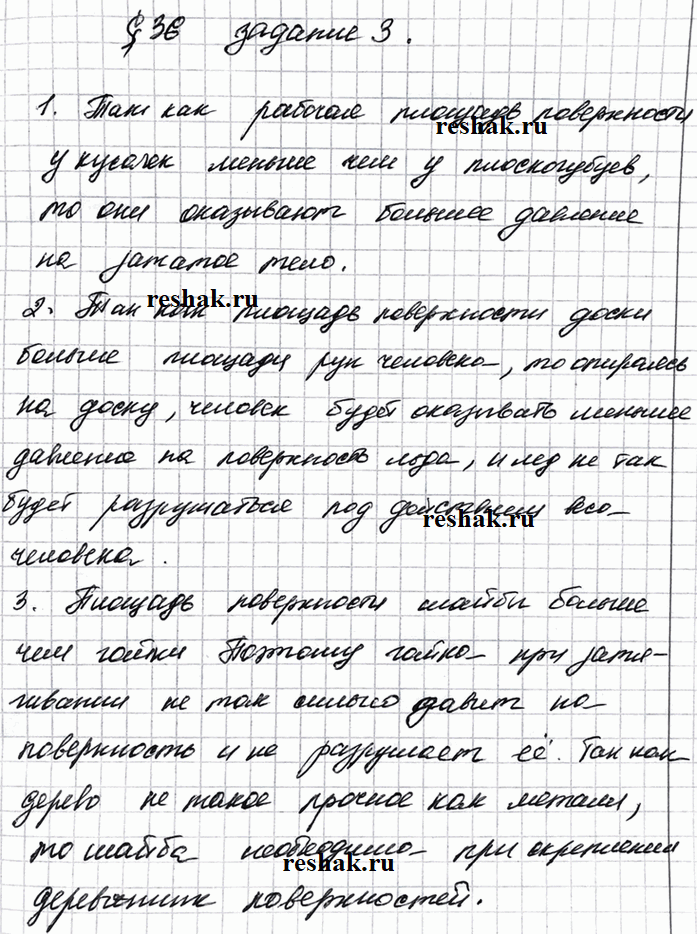 § 36 задание 3.
1. Так как рабочая площадь поверхности
reshak.ru
у кусачек меньше чем у плоскогубцев,
то они оказывают большее давление
на зажатое тело.
reshak.ru
2. Так как площадь поверхности доски
больше площади рук человека, то опираясь
на доску, человек будет оказывать меньшее
давление на поверхность льда, и лед не так
будет разрушаться под действием веса
reshak.ru
человека.
3. Площадь поверхности шайбы больше
чем гайки Поэтому гайка при затя-
гивании не так сильно давит на
поверхность и не разрушает её. Так как
дерево не такое прочное как металл,
то шайба необходима при скреплении
reshak.ru
деревянных поверхностей.